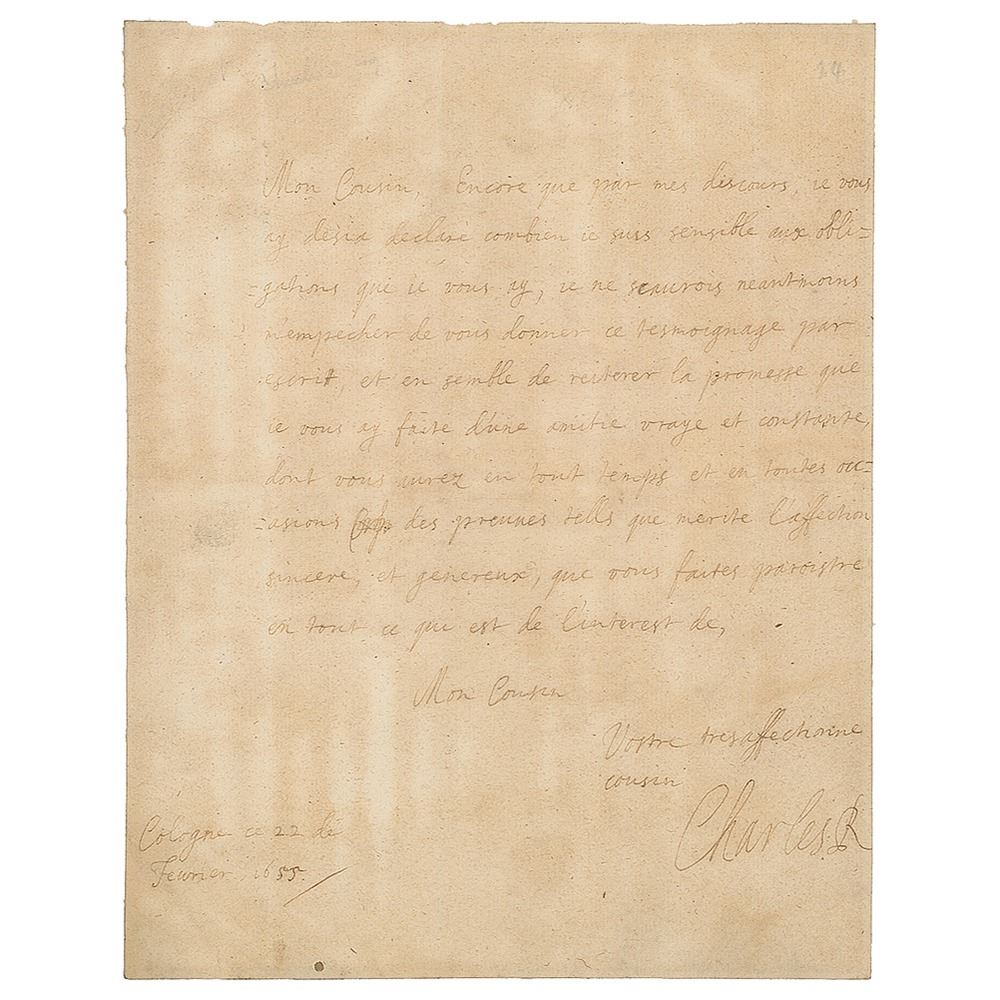 14
Mon Cousin, Encore que par mes discours, ie vous
ay desia declaré combien ie suis sensible aux obli=
=gations que ie vous ay, ie ne scaurois neantmoins
m'empecher de vous donner ce tesmoignage par
escrit, et en semble de reiterer la promesse que
ie vous ay faite d'une amitie vraye et constante,
dont vous aurez en tout temps et en toutes oc=
=asions des preuues tells que merite l'affection
sincere, et genereux, que vous faites paroistre
en tout ce qui est de l'interest de,
Mon Cousin
Vostre tresaffectionne
cousin
Charles R
Cologne ce 22 de
Feurier, 1655.